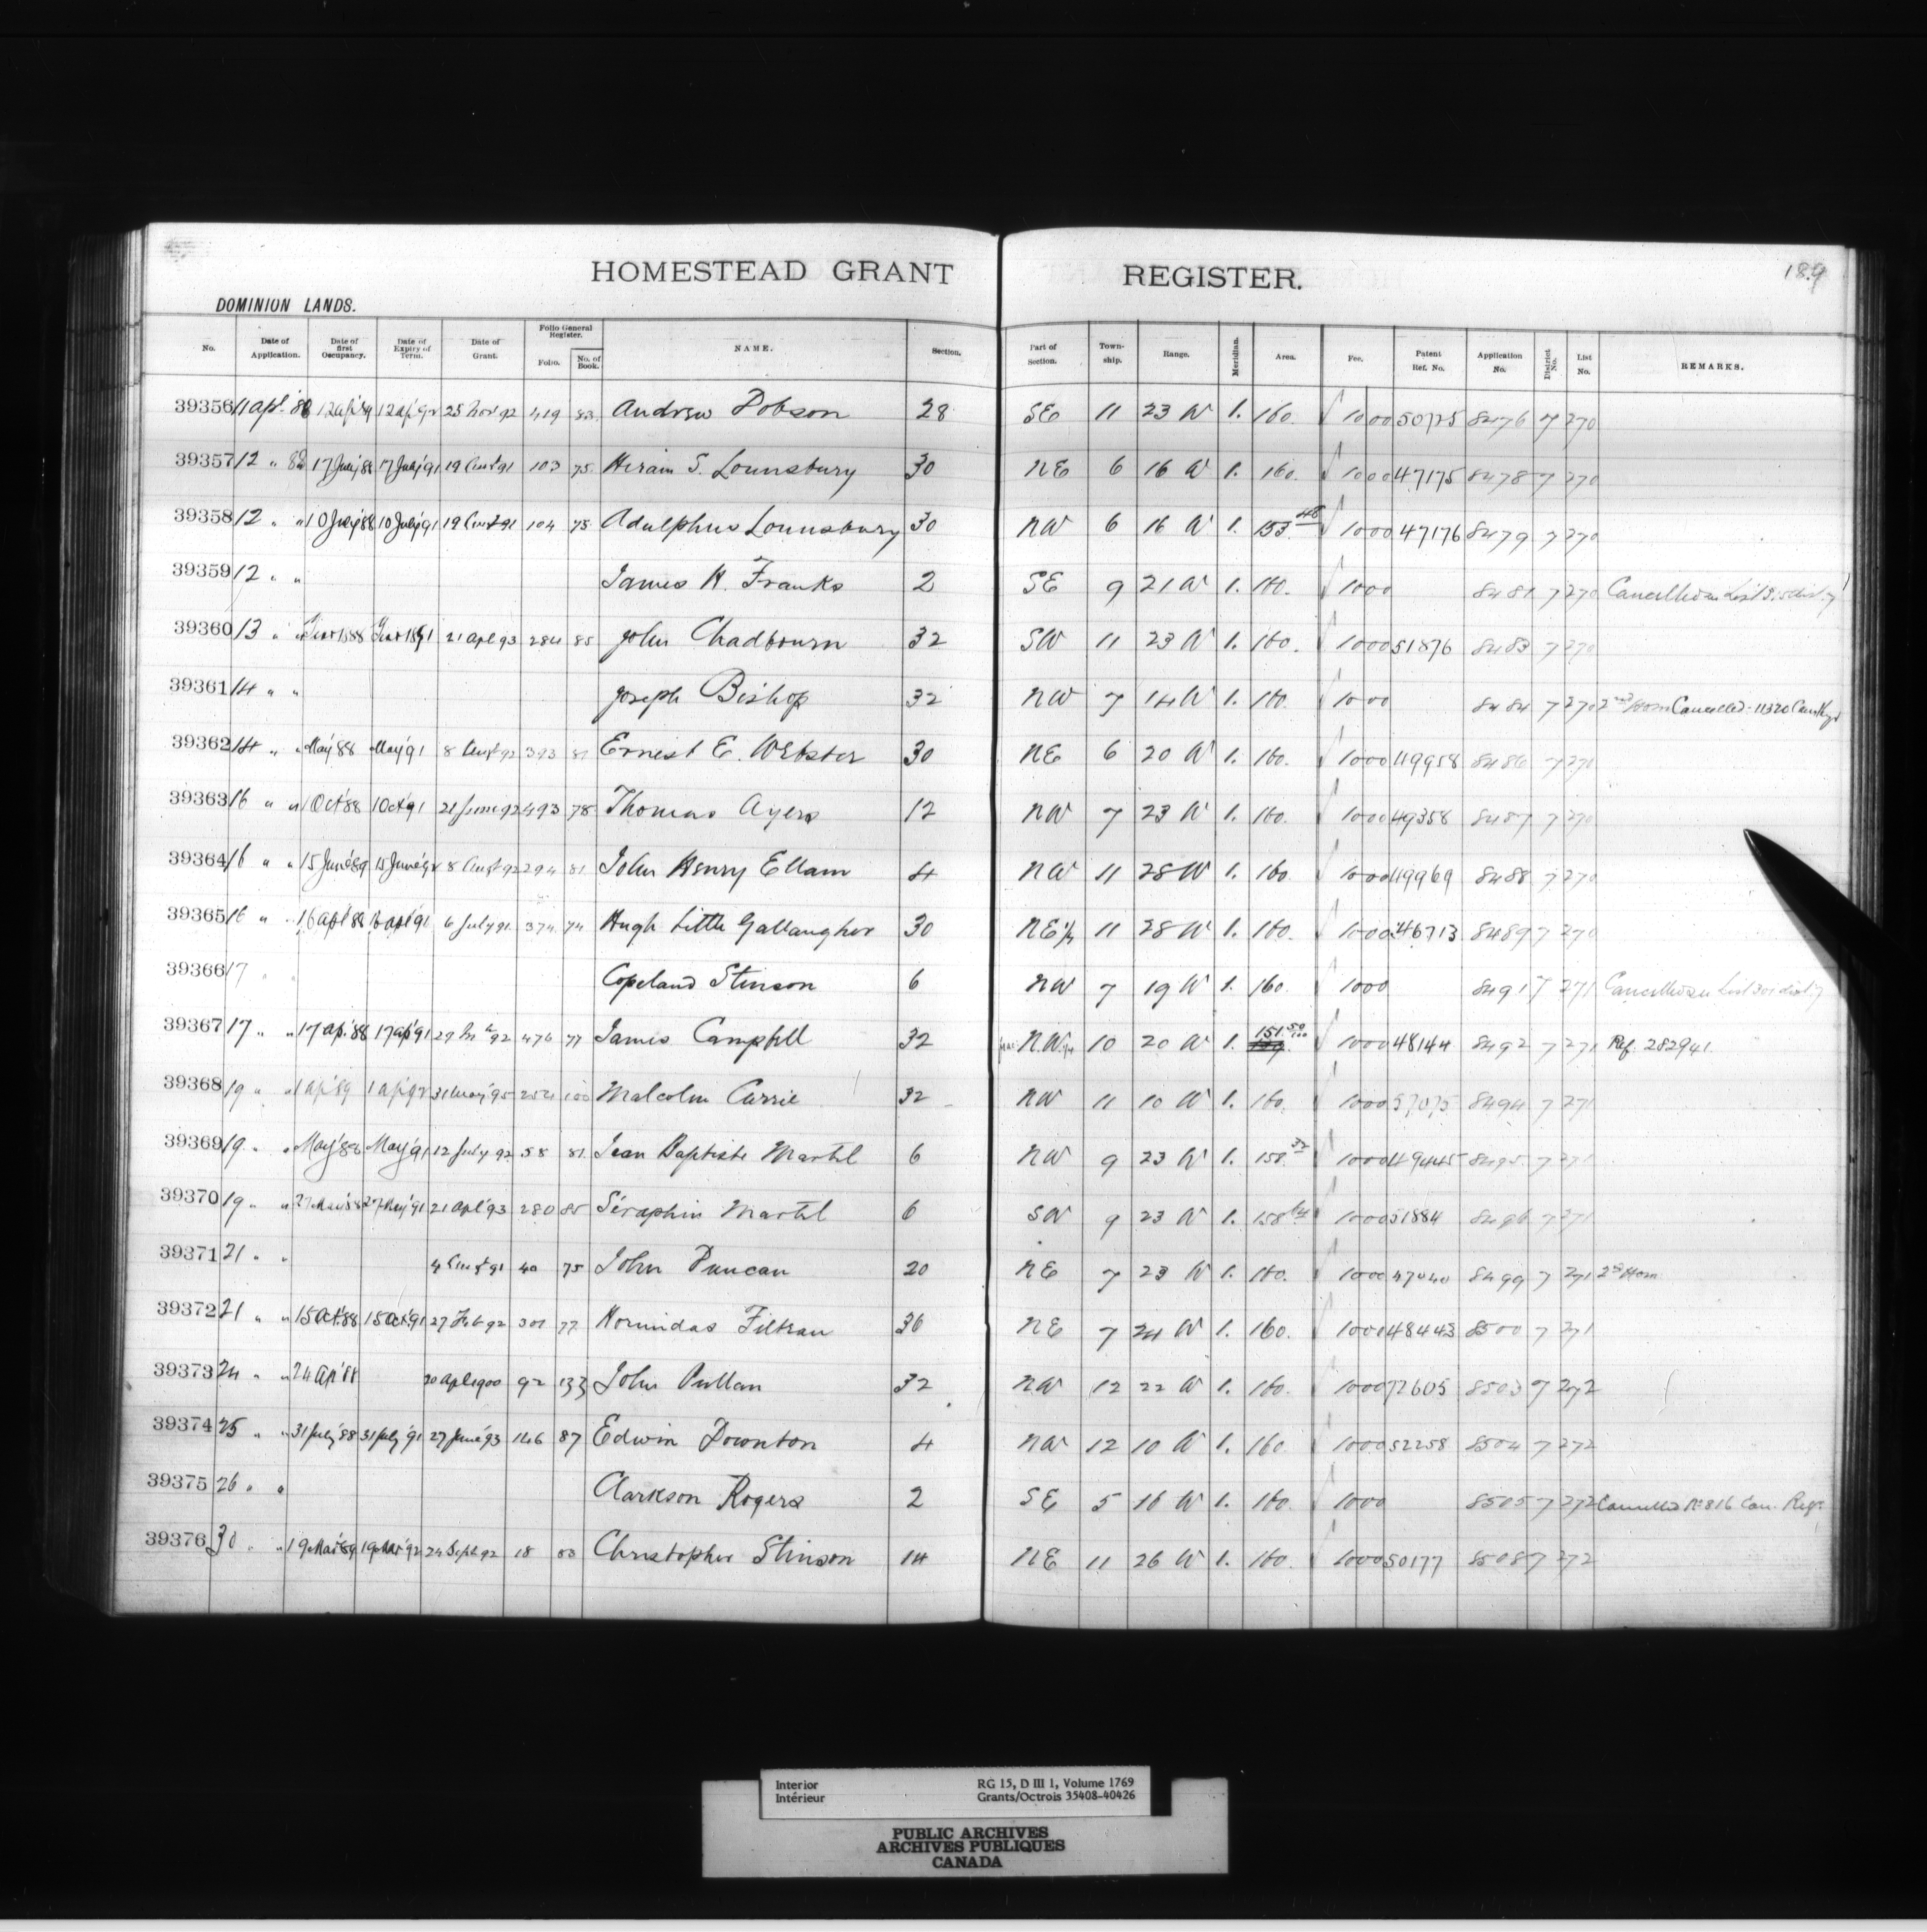 HOMESTEAD GRANT REGISTER. 189
DOMINION LANDS.
No. Date of Application. Date of first Occupancy. Date of Expiry of Term. Date of Grant. Folio General Register. Folio. No. of Book. NAME. Section. Part of Section. Town-ship. Range. Meridian. Area. Fee. Patent Ref. No. Application No. District No. List No. REMARKS.
39356 11 apl. 88 12 ap'89 12 ap'92 25 Nov 92 419 83 Andrew Dobson 28 SE 11 23 W 1. 160. 10 00 50725 8476 7 270
39357 12 " 88 17 July 88 17 July 91 19 Augt 91 103 75 Hiram S. Lounsbury 30 NE 6 16 W 1. 160. 10 00 47175 8478 7 270
39358 12 " " 10 July 88 10 July 91 19 Augt 91 104 75 Adulphus Lounsbury 30 NW 6 16 W 1. 153.48 10 00 47176 8479 7 270
39359 12 " " James H. Franks 2 SE 9 21 W 1. 160. 10 00 8481 7 270
39360 13 " " 284 85 John Chadbourn 32 SW 11 23 W 1. 160. 10 00 51876 8483 7 270
39361 14 " " Joseph Bishop 32 NW 7 14 W 1. 160. 10 00 8484 7 270 2nd Hom Cancelled - 11320
39362 14 " " May 88 May 91 8 Augt 92 81 Ernest E. Webster 30 NE 6 20 W 1. 160. 10 00 49958 8486 7 271
39363 16 " " 1 Oct 88 1 Oct 91 21 June 92 493 78 Thomas Ayers 12 NW 7 23 W 1. 160. 10 00 49358 8487 7 270
39364 16 " " 15 June 89 15 June 92 8 Augt 92 294 81 John Henry Ellam 4 NW 11 28 W 1. 160 10 00 49969 8488 7 270
39365 16 " " 16 apl 88 16 apl 91 6 July 91 374 74 Hugh Little Gallaugher 30 NE 1/4 11 28 W 1. 160. 10 00 46713 8489 7 270
39366 17 " " Copeland Stinson 6 NW 7 19 W 1. 160. 10 00 8491 7 271
39367 17 " " 17 ap. 88 17 ap 91 476 77 James Campbell 32 N.W. 1/4 10 20 W 1. 151.50 10 00 48144 8492 7 271 Ref. 282941.
39368 19 " " 1 ap'89 1 ap'92 31 May 95 254 100 Malcolm Currie 32 NW 11 10 W 1. 160. 10 00 57075 8494 7 271
39369 19 " " May 88 May 91 12 July 92 58 81 Jean Baptiste Martel 6 NW 9 23 W 1. 158. 10 00 49445 8495 7 271
39370 19 " " 21 apl 93 280 85 Séraphin Martel 6 SW 9 23 W 1. 158.64 10 00 51884 8496 7 271
39371 21 " " 4 Augt 91 40 75 John Duncan 20 NE 7 23 W 1. 160. 10 00 47040 8499 7 271 2nd Hom
39372 21 " " 15 Oct. 88 15 Oct. 91 27 Feb 92 301 77 Hormidas Filtrau 36 NE 7 24 W 1. 160. 10 00 48443 8500 7 271
39373 24 " " 24 ap'88 20 apl 1900 92 133 John Pullan 32 NW 12 22 W 1. 160. 10 00 72605 8503 7 272
39374 25 " " 31 July 88 31 July 91 27 June 93 146 87 Edwin Downton 4 NW 12 10 W 1. 160 10 00 52258 8504 7 272
39375 26 " " Clarkson Rogers 2 SE 5 16 W 1. 160. 10 00 8505 7 272 Cancelled No 816 Can. Regr.
39376 30 " " 19 Mar 89 19 Mar 92 24 Sept 92 18 83 Christopher Stinson 14 NE 11 26 W 1. 160. 10 00 50177 8508 7 272
Interior RG 15, D III 1, Volume 1769
Intérieur Grants/Octrois 35408-40426
PUBLIC ARCHIVES
ARCHIVES PUBLIQUES
CANADA